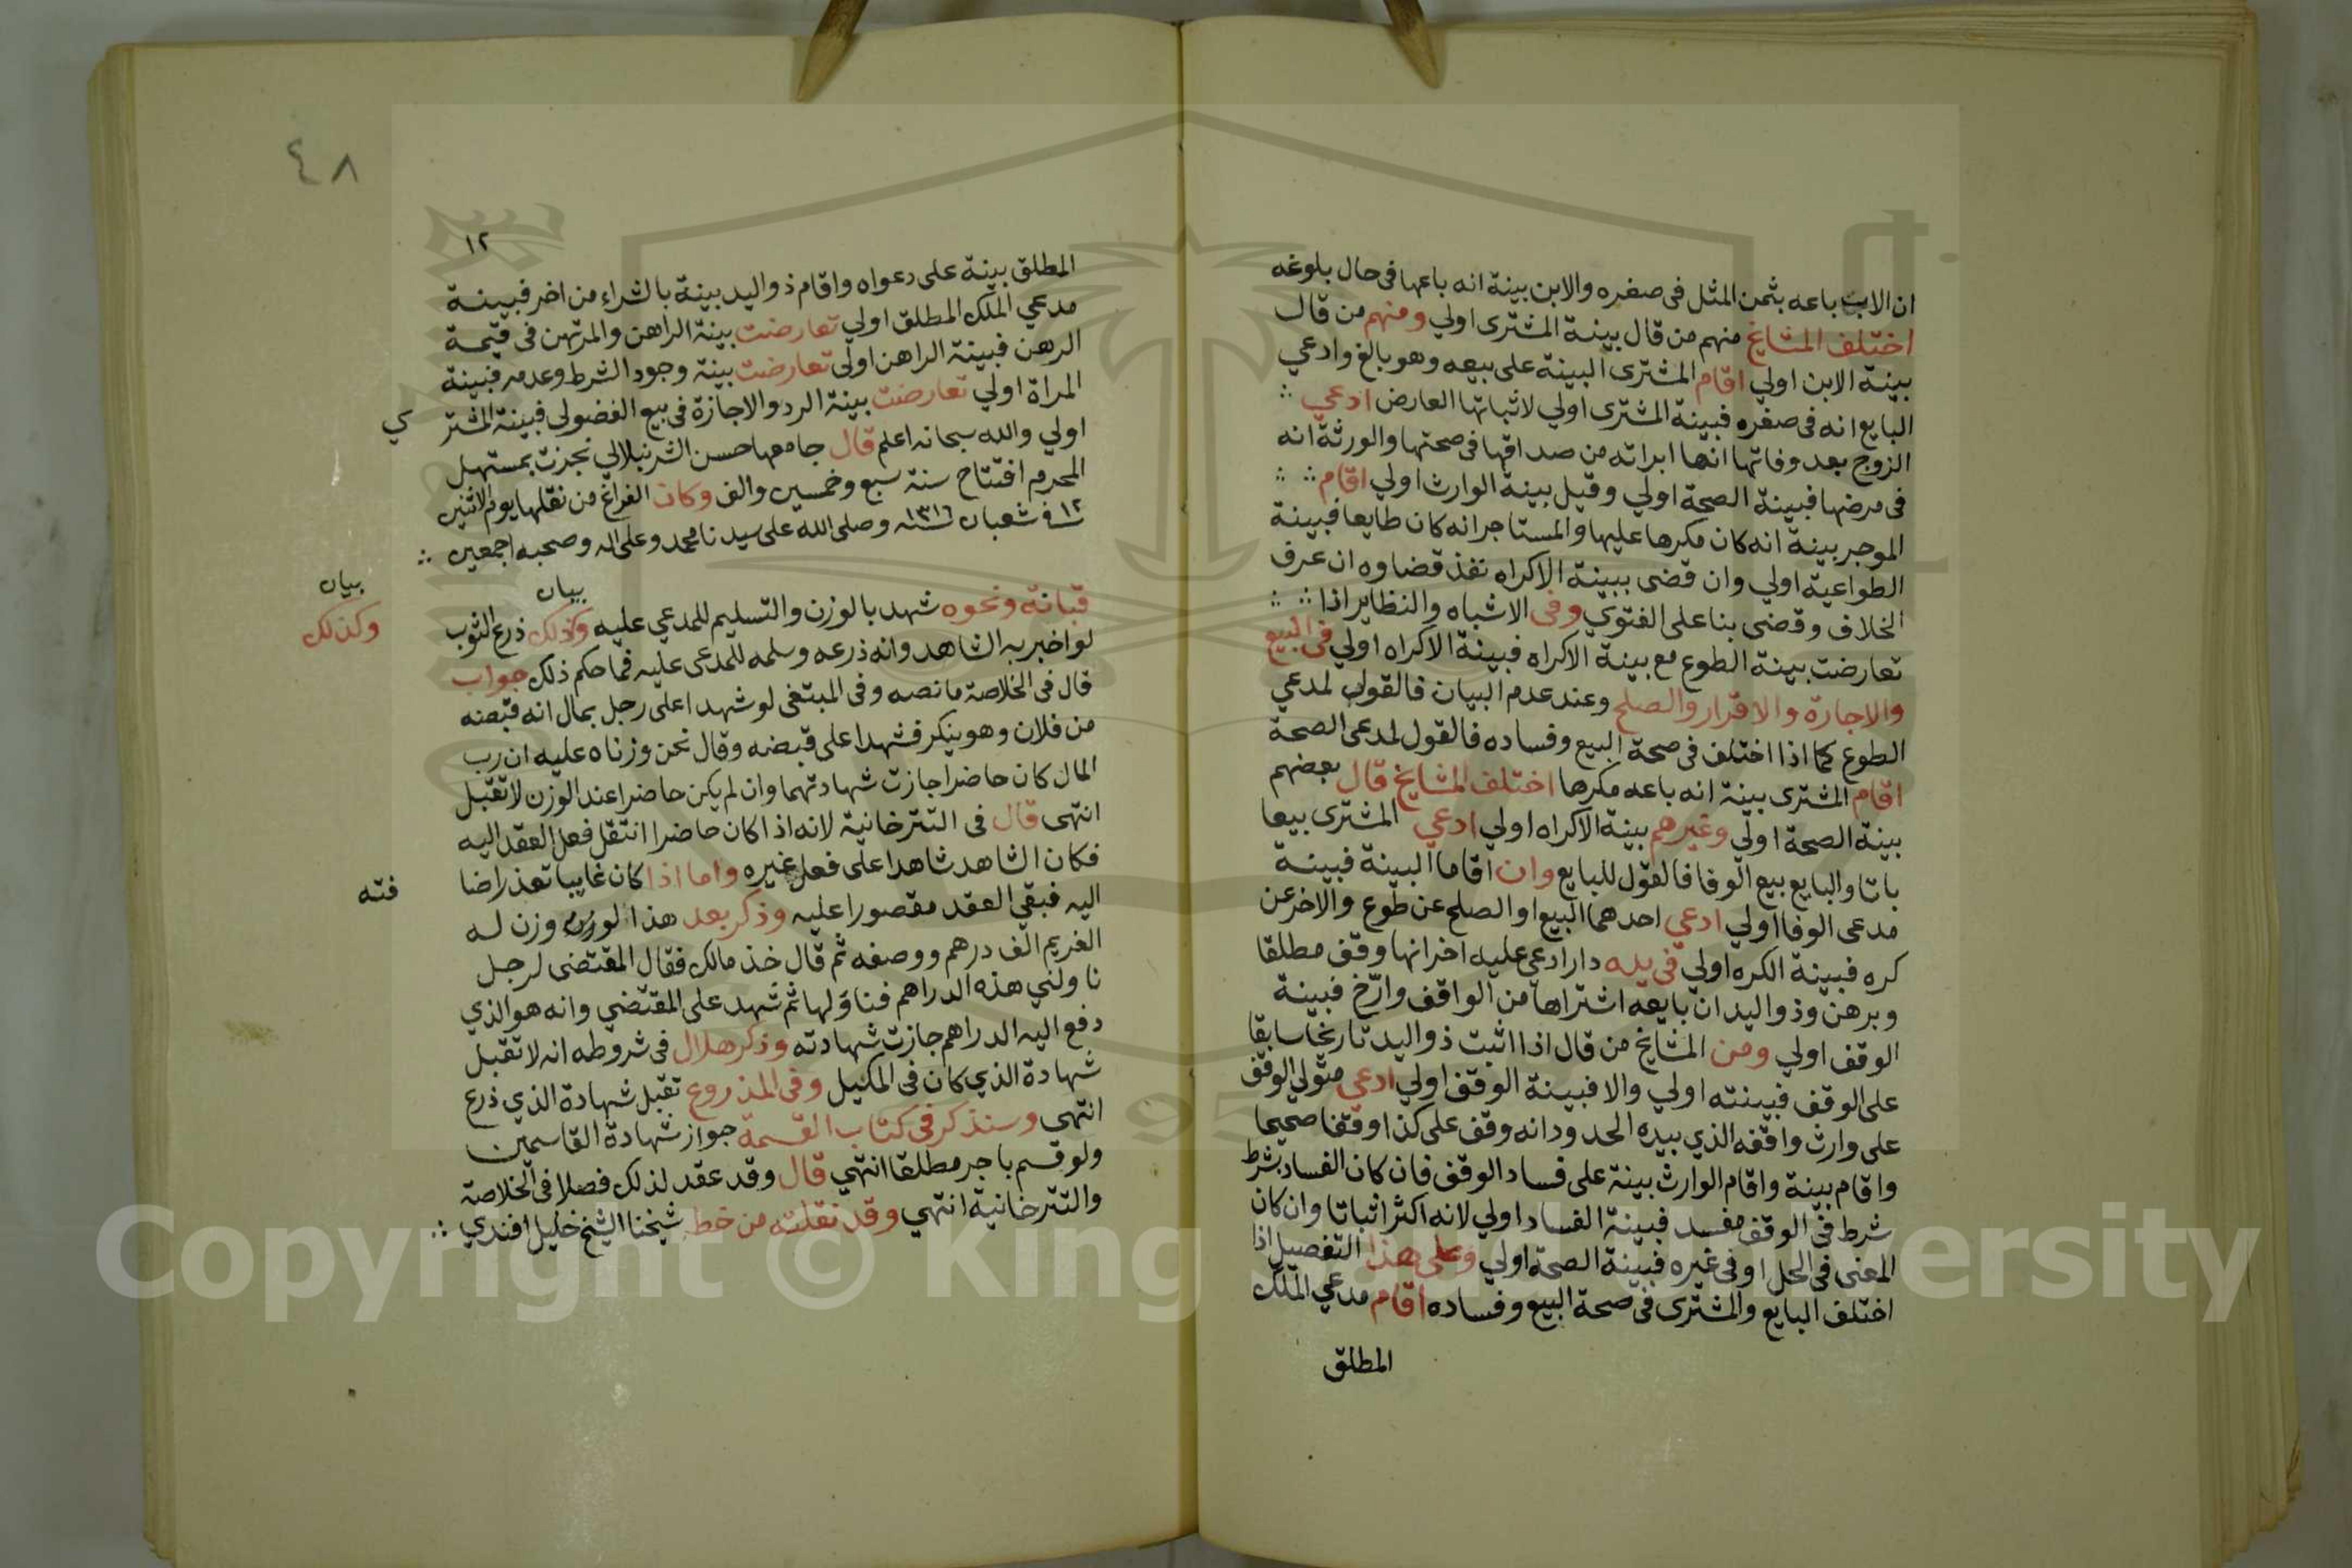 ان الاب باعه بثمن المثل فى صغره والابن بينة انه باعها فى حال بلوغه
اختلف المشايخ منهم من قال بينة المشترى اولي ومنهم من قال
بينة الابن اولي اقام المشترى البينة على بيعه وهو بالغ وادعي
البايع انه فى صغره فبينة المشترى اولي لاثباتها العارض ادعي
الزوج بعد وفاتها انها ابراته من صداقها فى صحتها والورثة انه
فى مرضها فبينة الصحة اولي وقيل بينة الوارث اولي اقام
الموجر بينة انه كان مكرها عليها والمستاجر انه كان طايعا فبينة
الطواعية اولي وان قضى ببينة الاكراه نفذ قضاوه ان عرف
الخلاف وقضى بنا على الفتوي وفى الاشباه والنظاير اذا
تعارضت بينة الطوع مع بينة الاكراه فبينة الاكراه اولي فى البيع
والاجارة والاقرار والصلح وعند عدم البيان فالقول لمدعي
الطوع كما اذا اختلف فى صحة البيع وفساده فالقول لمدعى الصحة
اقام المشترى بينة انه باعه مكرها اختلف المشايخ قال بعضهم
بينة الصحة اولي وغيرهم بينة الاكراه اولي ادعي المشترى بيعا
باتا والبايع بيع الوفا فالقول للبايع وان اقاما البينة فبينة
مدعى الوفا اولي ادعي احدهما البيع او الصلح عن طوع والاخر عن
كره فبينة الكره اولي فى يده دار ادعي عليه اخر انها وقف مطلقا
وبرهن وذو اليد ان بايعه اشتراها من الواقف وارخ فبينة
الوقف اولي ومن المشايخ من قال اذا اثبت ذو اليد تاريخا سابقا
على الوقف فبينته اولي والا فبينة الوقف اولي ادعي متولي الوقف
على وارث واقفه الذي بيده الحدود انه وقف على كذا وقفا صحيحا
واقام بينة واقام الوارث بينة على فساد الوقف فان كان الفساد بشرط
شرط فى الوقف مفسد فبينة الفساد اولي لانه اكثر اثباتا وان كان
المعنى فى المحل او فى غيره فبينة الصحة اولي وعلى هذا التفصيل اذا
اختلف البايع والمشترى فى صحة البيع وفساده اقام مدعي الملك
المطلق
٤٨
١٢
المطلق بينة على دعواه واقام ذو اليد بينة بالشراء من اخر فبينة
مدعي الملك المطلق اولي تعارضت بينة الراهن والمرتهن فى قيمة
الرهن فبينة الراهن اولى تعارضت بينة وجود الشرط وعدمه فبينة
المراة اولي تعارضت بينة الرد والاجازة فى بيع الفضولى فبينة المشتر
ي
اولي والله سبحانه اعلم قال جامعها حسن الشرنبلالي نجزت بمستهل
المحرم افتتاح سنة سبع وخمسين والف وكان الفراغ من نقلها يوم الاثنين
١٢ فى شعبان ١٣١٦ وصلى الله على سيدنا محمد وعلى اله وصحبه اجمعين
بيان
بيان
قبانة ونحوه شهد بالوزن والتسليم للمدعي عليه وكذلك ذرع الثوب
وكذلك
لو اخبر به الشاهد وانه ذرعه وسلمه للمدعى عليه فما حكم ذلك جواب
قال فى الخلاصة ما نصه وفى المبتغى لو شهدا على رجل بمال انه قبضه
من فلان وهو ينكر فشهدا على قبضه وقال نحن وزناه عليه ان رب
المال كان حاضرا جازت شهادتهما وان لم يكن حاضرا عند الوزن لا تقبل
انتهى قال فى التترخانية لانه اذا كان حاضرا انتقل فعل العقد اليه
فكان الشاهد شاهدا على فعل غيره واما اذا كان غايبا تعذر اضا
فته
اليه فبقي العقد مقصورا عليه وذكر بعد هذا لو وزن له
الغريم الف درهم ووصفه ثم قال خذ مالك فقال المقتضى لرجل
ناولني هذه الدراهم فناولها ثم شهد على المقتضي وانه هو الذي
دفع اليه الدراهم جازت شهادته وذكر هلال فى شروطه انه لا تقبل
شهادة الذي كان فى المكيل وفى المذروع تقبل شهادة الذي ذرع
انتهى وسنذكر فى كتاب القسمة جواز شهادة القاسمين
ولو قسم باجر مطلقا انتهي قال وقد عقد لذلك فصلا فى الخلاصة
والتترخانية انتهي وقد نقلته من خط شيخنا الشيخ خليل افندي
Copyright © King Saud University